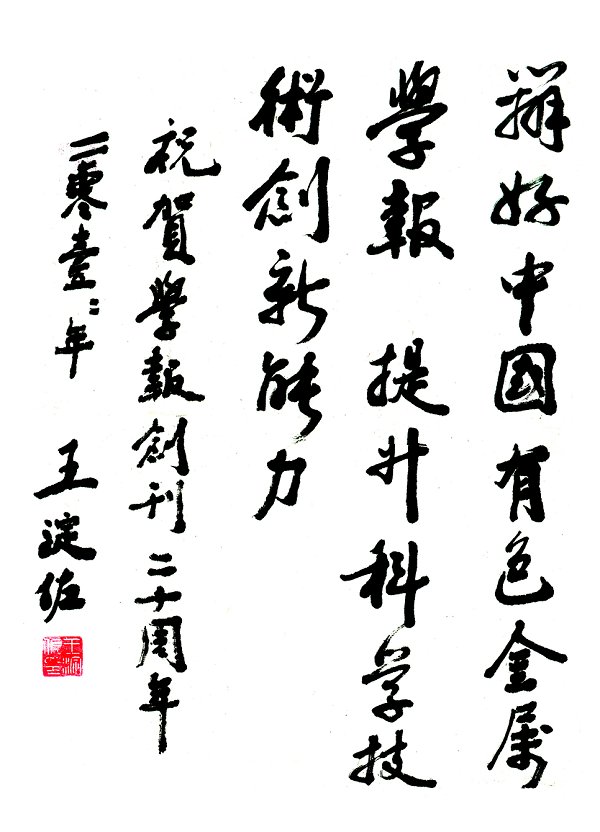 辦好中國有色金属
學報 提升科学技
術創新能力
祝賀學報創刊二十周年
二零壹二年 王淀佐